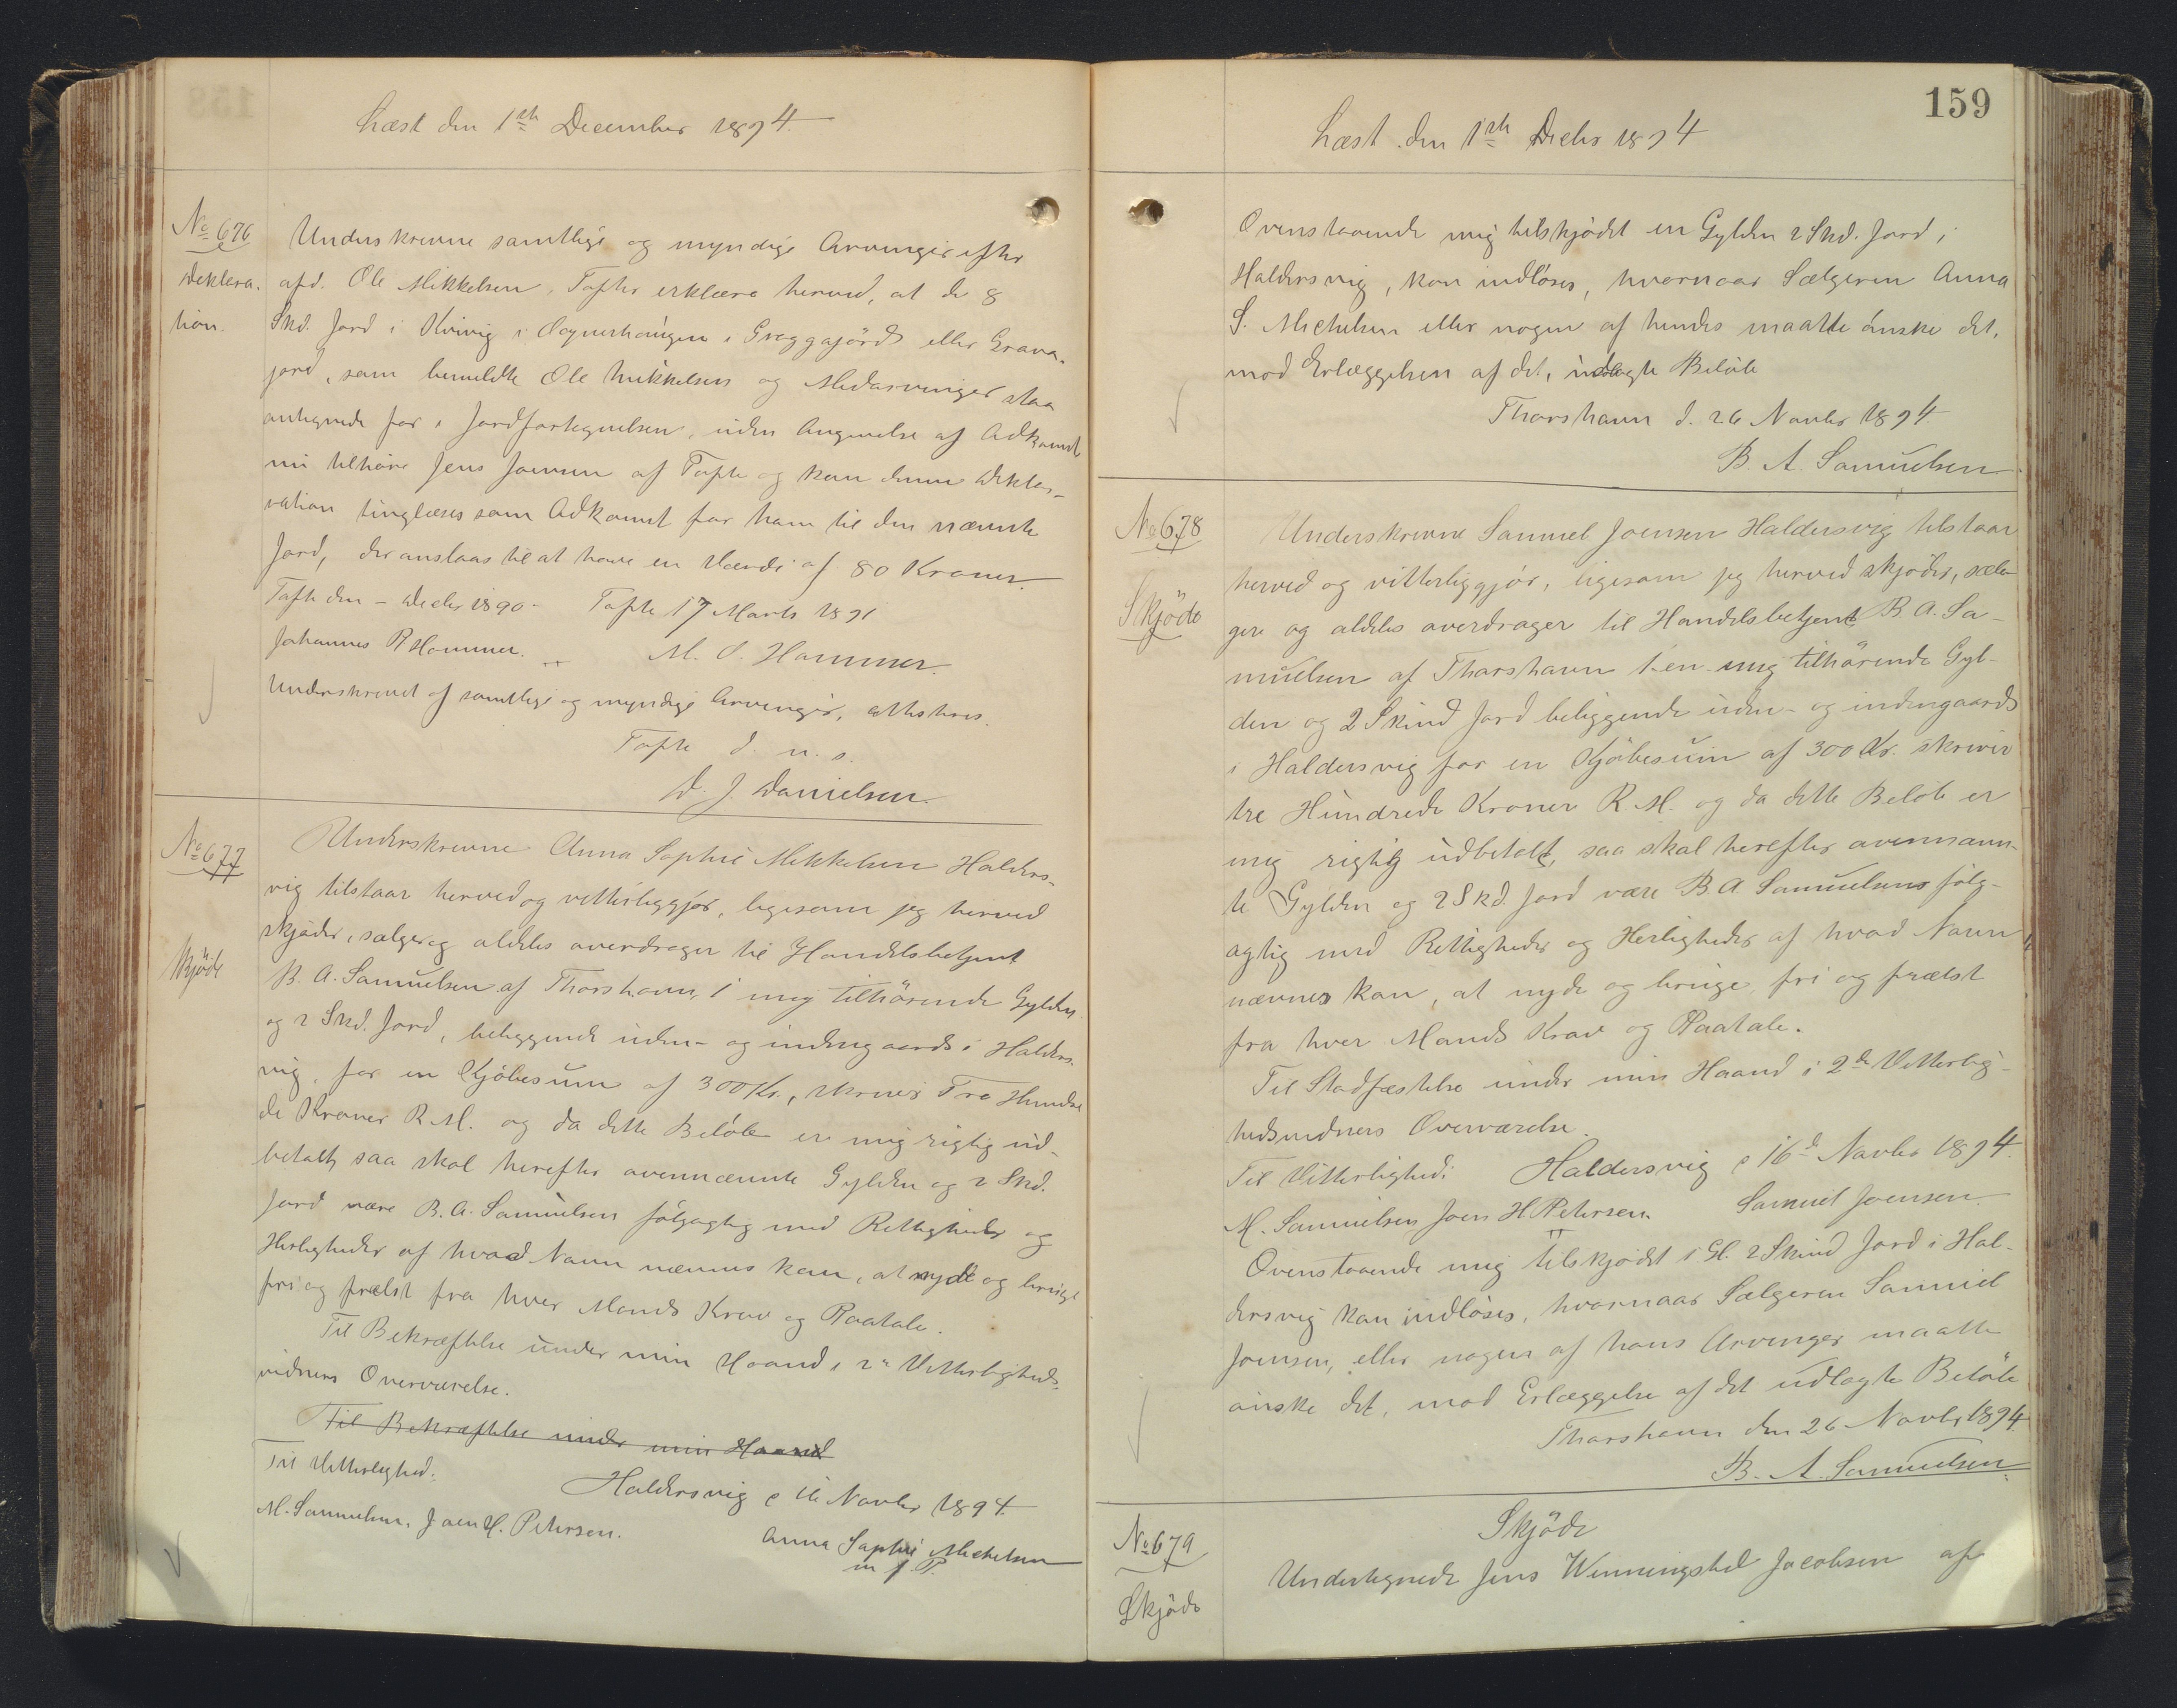 Læst den 1ste December 1894.
No 676
Deklera-
tion.
Underskrevne samtlige og myndige Arvinger efter
afd. Ole Mikkelsen, Tofter erklære herved, at de 8
Skd. Jord i Kvivig i i Groggajörd eller Grava-
jord, som bemeldte Ole Mikkelsen og Medarvinger staa
antegnede for i Jordfortegnelsen, uden Angivelse af Adkomst
nu tilhøre Jens Joensen af Tofte og kan denne Dekla-
ration tinglæses som Adkomst for ham til den nævnte
Jord, der anslaas til at have en Værdi af 80 Kroner.
Tofte den - Decbr 1890 - Tofte 17 Marts 1891
Johannes P Hammer. M. S. Hammer.
Underskrevet af samtlige og myndige Arvinger, attesteres.
Tofte d. u. s.
D. J. Danielsen.
No 677
Skjöde
Underskrevne Anna Sophie Mikkelsen Halders-
vig tilstaar herved og vitterliggjör, ligesom jeg herved
skjöder, sælger og aldeles overdrager til Handelsbetjent
B. A. Samuelsen af Thorshavn, 1 mig tilhörende Gylden
og 2 Skd. Jord, beliggende uden- og indengaards i Halders-
vig, for en Kjöbesum af 300 Kr., skriver Tre Hundre
de Kroner R. M. og da dette Belöb er mig rigtig ud-
betalt, saa skal herefter ovennævnte Gylden og 2 Skd.
Jord være B. A. Samuelsen fölgagtig med Rettigheder og
Herligheder af hvad Navn nævnes kan, at nyde og bruge
fri og frelst fra hver Mands Krav og Paatale.
Til Bekræftelse under min Haand i 2de Vitterligheds-
vidners Overværelse.
Til Bekræftelse under min Haand
Til Vitterlighed.
Haldersvig d 16 Novbr 1894.
M. Samuelsen. Joen H. Petersen.
Anna Sophie Michelsen
m f P.
159
Læst den 1ste Decbr 1894
Ovenstaaende mig tilskjödet en Gylden 2 Skd. Jord i
Haldersvig, kan indlöses, hvornaar Sælgeren Anna
S. Michelsen eller nogen af hendes maatte önske det,
mod Erlæggelsen af det, udlagte Belöb
Thorshavn d. 26 Novbr 1894.
B. A. Samuelsen
No 678
Skjöde
Underskrevne Samuel Joensen Haldersvig tilstaar
herved og vitterliggjör, ligesom jeg herved skjöder, sæl-
ger og aldeles overdrager til Handelsbetjent B. A. Sa-
muelsen af Thorshavn 1-en- mig tilhörende Gyl-
den og 2 Skind Jord beliggende uden- og indengaards
i Haldersvig for en Kjöbesum af 300 Kr. skriver
tre Hundrede Kroner R. M. og da dette Belöb er
mig rigtig udbetalt, saa skal herefter ovennævn-
te Gylden og 2 Skd. Jord være B A Samuelsens fölg-
agtig med Rettigheder og Herligheder af hvad Navn
nævnes kan, at nyde og bruge fri og frælst
fra hver Mands Krav og Paatale.
Til Stadfæstelse under min Haand i 2de Vitterlig-
hedsvidners Overværelse.
Til Vitterlighed: Haldersvig d 16d Novbr 1894.
M. Samuelsen Joen H Petersen. Samuel Joensen
Ovenstaaende mig tilskjödet 1 Gl. 2 Skind Jord i Hal-
dersvig kan indlöses, hvornaar Sælgeren Samuel
Joensen, eller nogen af hans Arvinger maatte
önske det, mod Erlæggelse af det udlagte Belöb
Thorshavn den 26 Novbr 1894
B. A. Samuelsen
No 679
Skjöde
Skjöde
Undertegnede Jens Wenningsted Jacobsen af